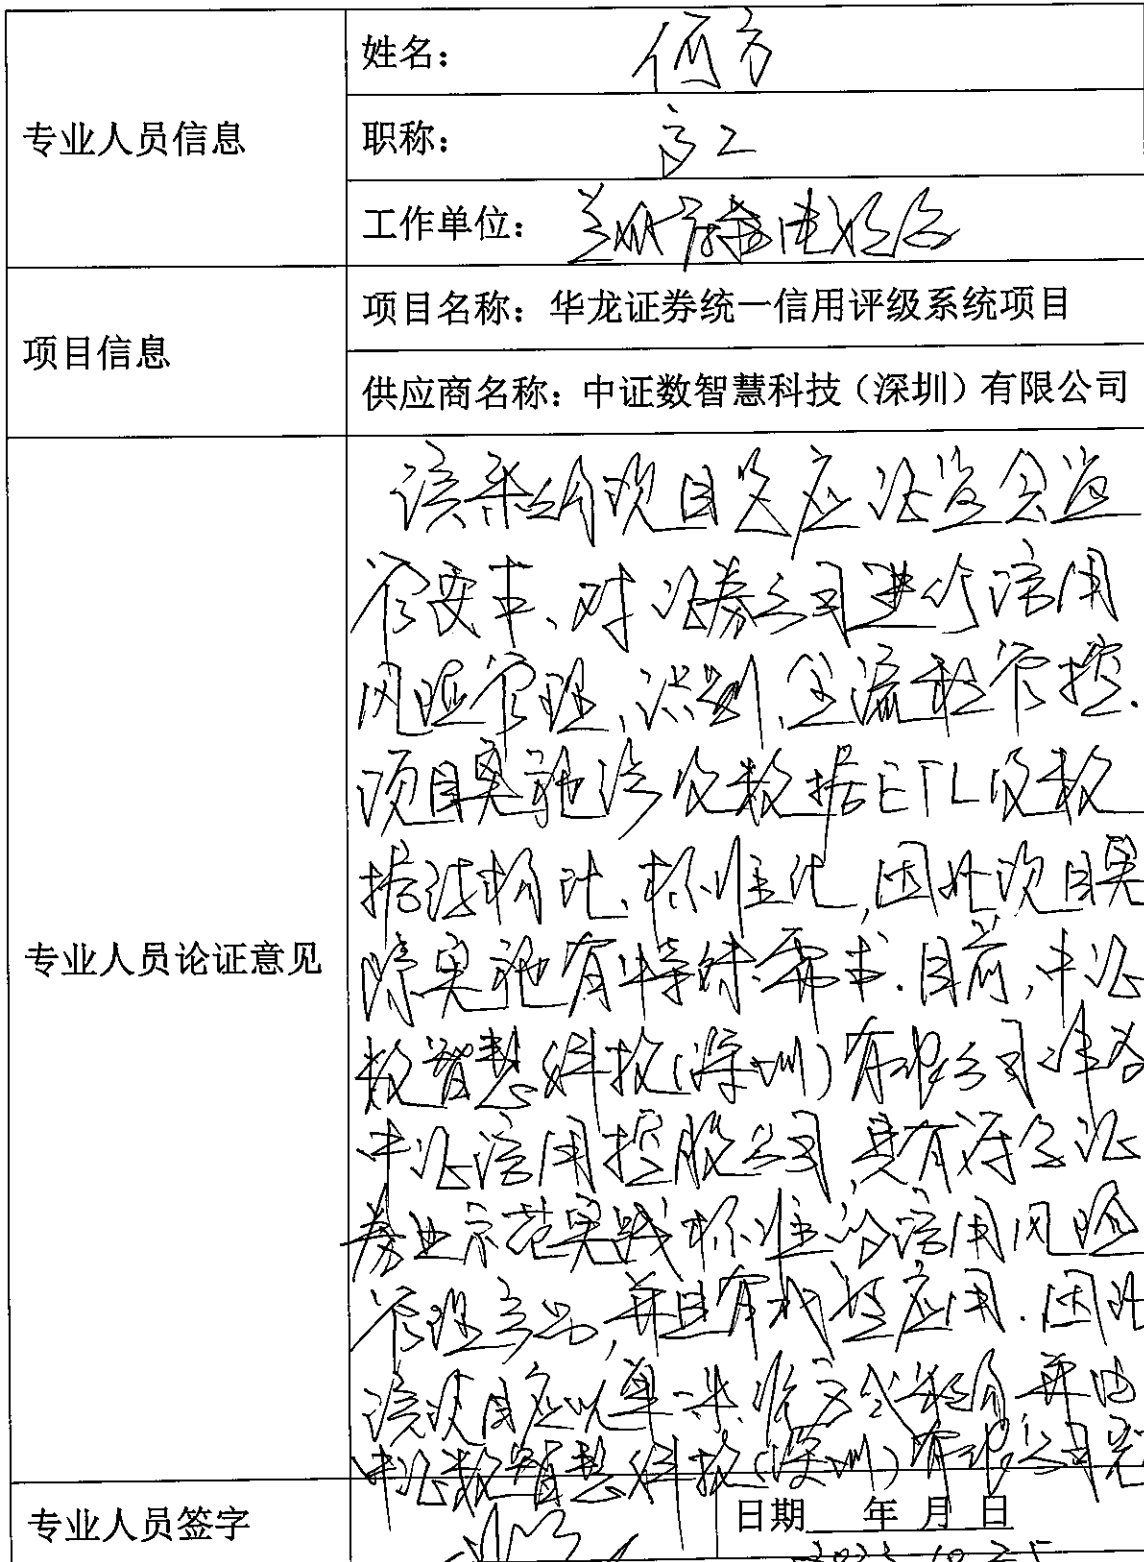 专业人员信息
姓名：何方
职称：高工
工作单位：兰州广播电视台
项目信息
项目名称：华龙证券统一信用评级系统项目
供应商名称：中证数智慧科技（深圳）有限公司
专业人员论证意见
该采购项目是应证监会监
管要求、对证券公司进行信用
风险管理、识别、全流程管控.
项目实施涉及数据ETL及数
据结构化、标准化,因此项目实
际实施有特殊需求.目前,中证
数智慧科技(深圳)有限公司
中证信用控股公司,具有符合证
券业示范实践标准的信用风险
管理产品,并且有成熟应用.因此
该项目应以单一来源方式采购并由
中证数智慧科技(深圳)有限公司
专业人员签字
日期 年 月 日